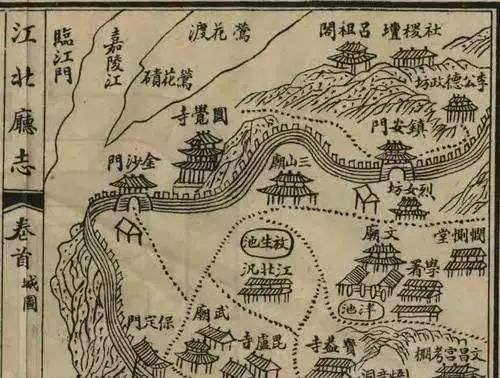 江北廳志
卷首
城圖
社稷壇
呂祖閣
鶯花渡
嘉陵江
臨江門
李公德政坊
鶯花磧
鎮安門
圓覺寺
金沙門
三山廟
烈女坊
文廟
憫惻堂
學署
放生池
江北汛
泮池
武廟
保定門
毘盧寺
寶蓋寺
文昌宮考棚